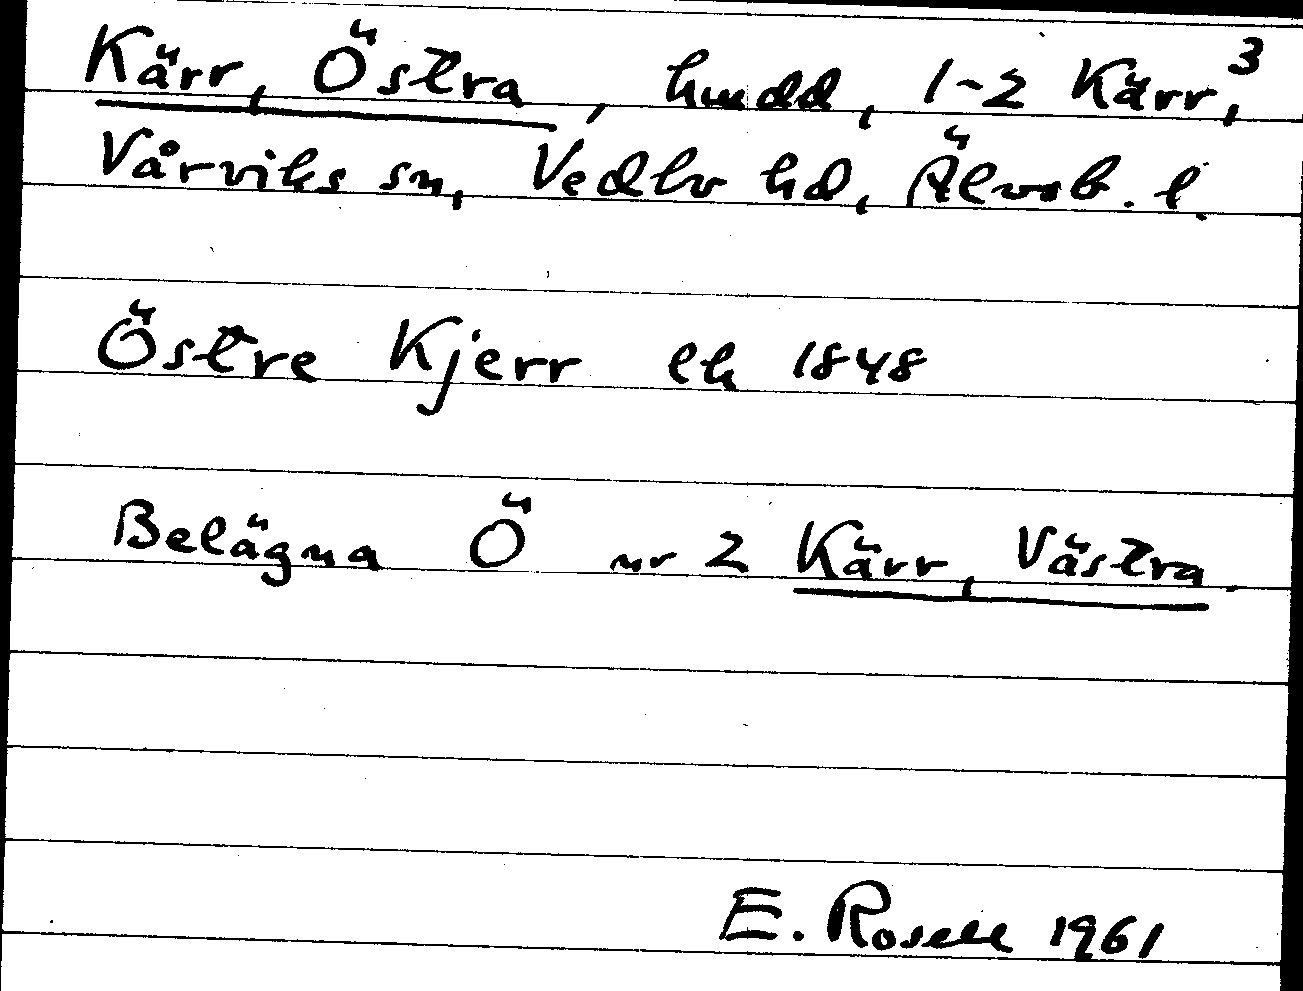 Kärr, Östra, hmdd, 1-2 Kärr, 3
Vårviks sn, Vedbo hd, Älvsb. l.
Östre Kjerr ek 1848
Belägna Ö nr 2 Kärr, Västra.
E. Rosell 1961